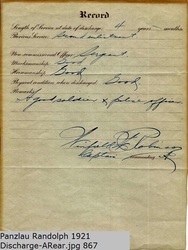 Record
Length of Service at date of discharge: 4 years months
Previous Service:
Non-commissioned Officer: Sergeant
Marksmanship: Good
Horsemanship: Good
Physical condition when discharged: Good
Remarks:
A good soldier & police officer
Captain Commanding
Panzlau Randolph 1921
Discharge-ARear.jpg 867